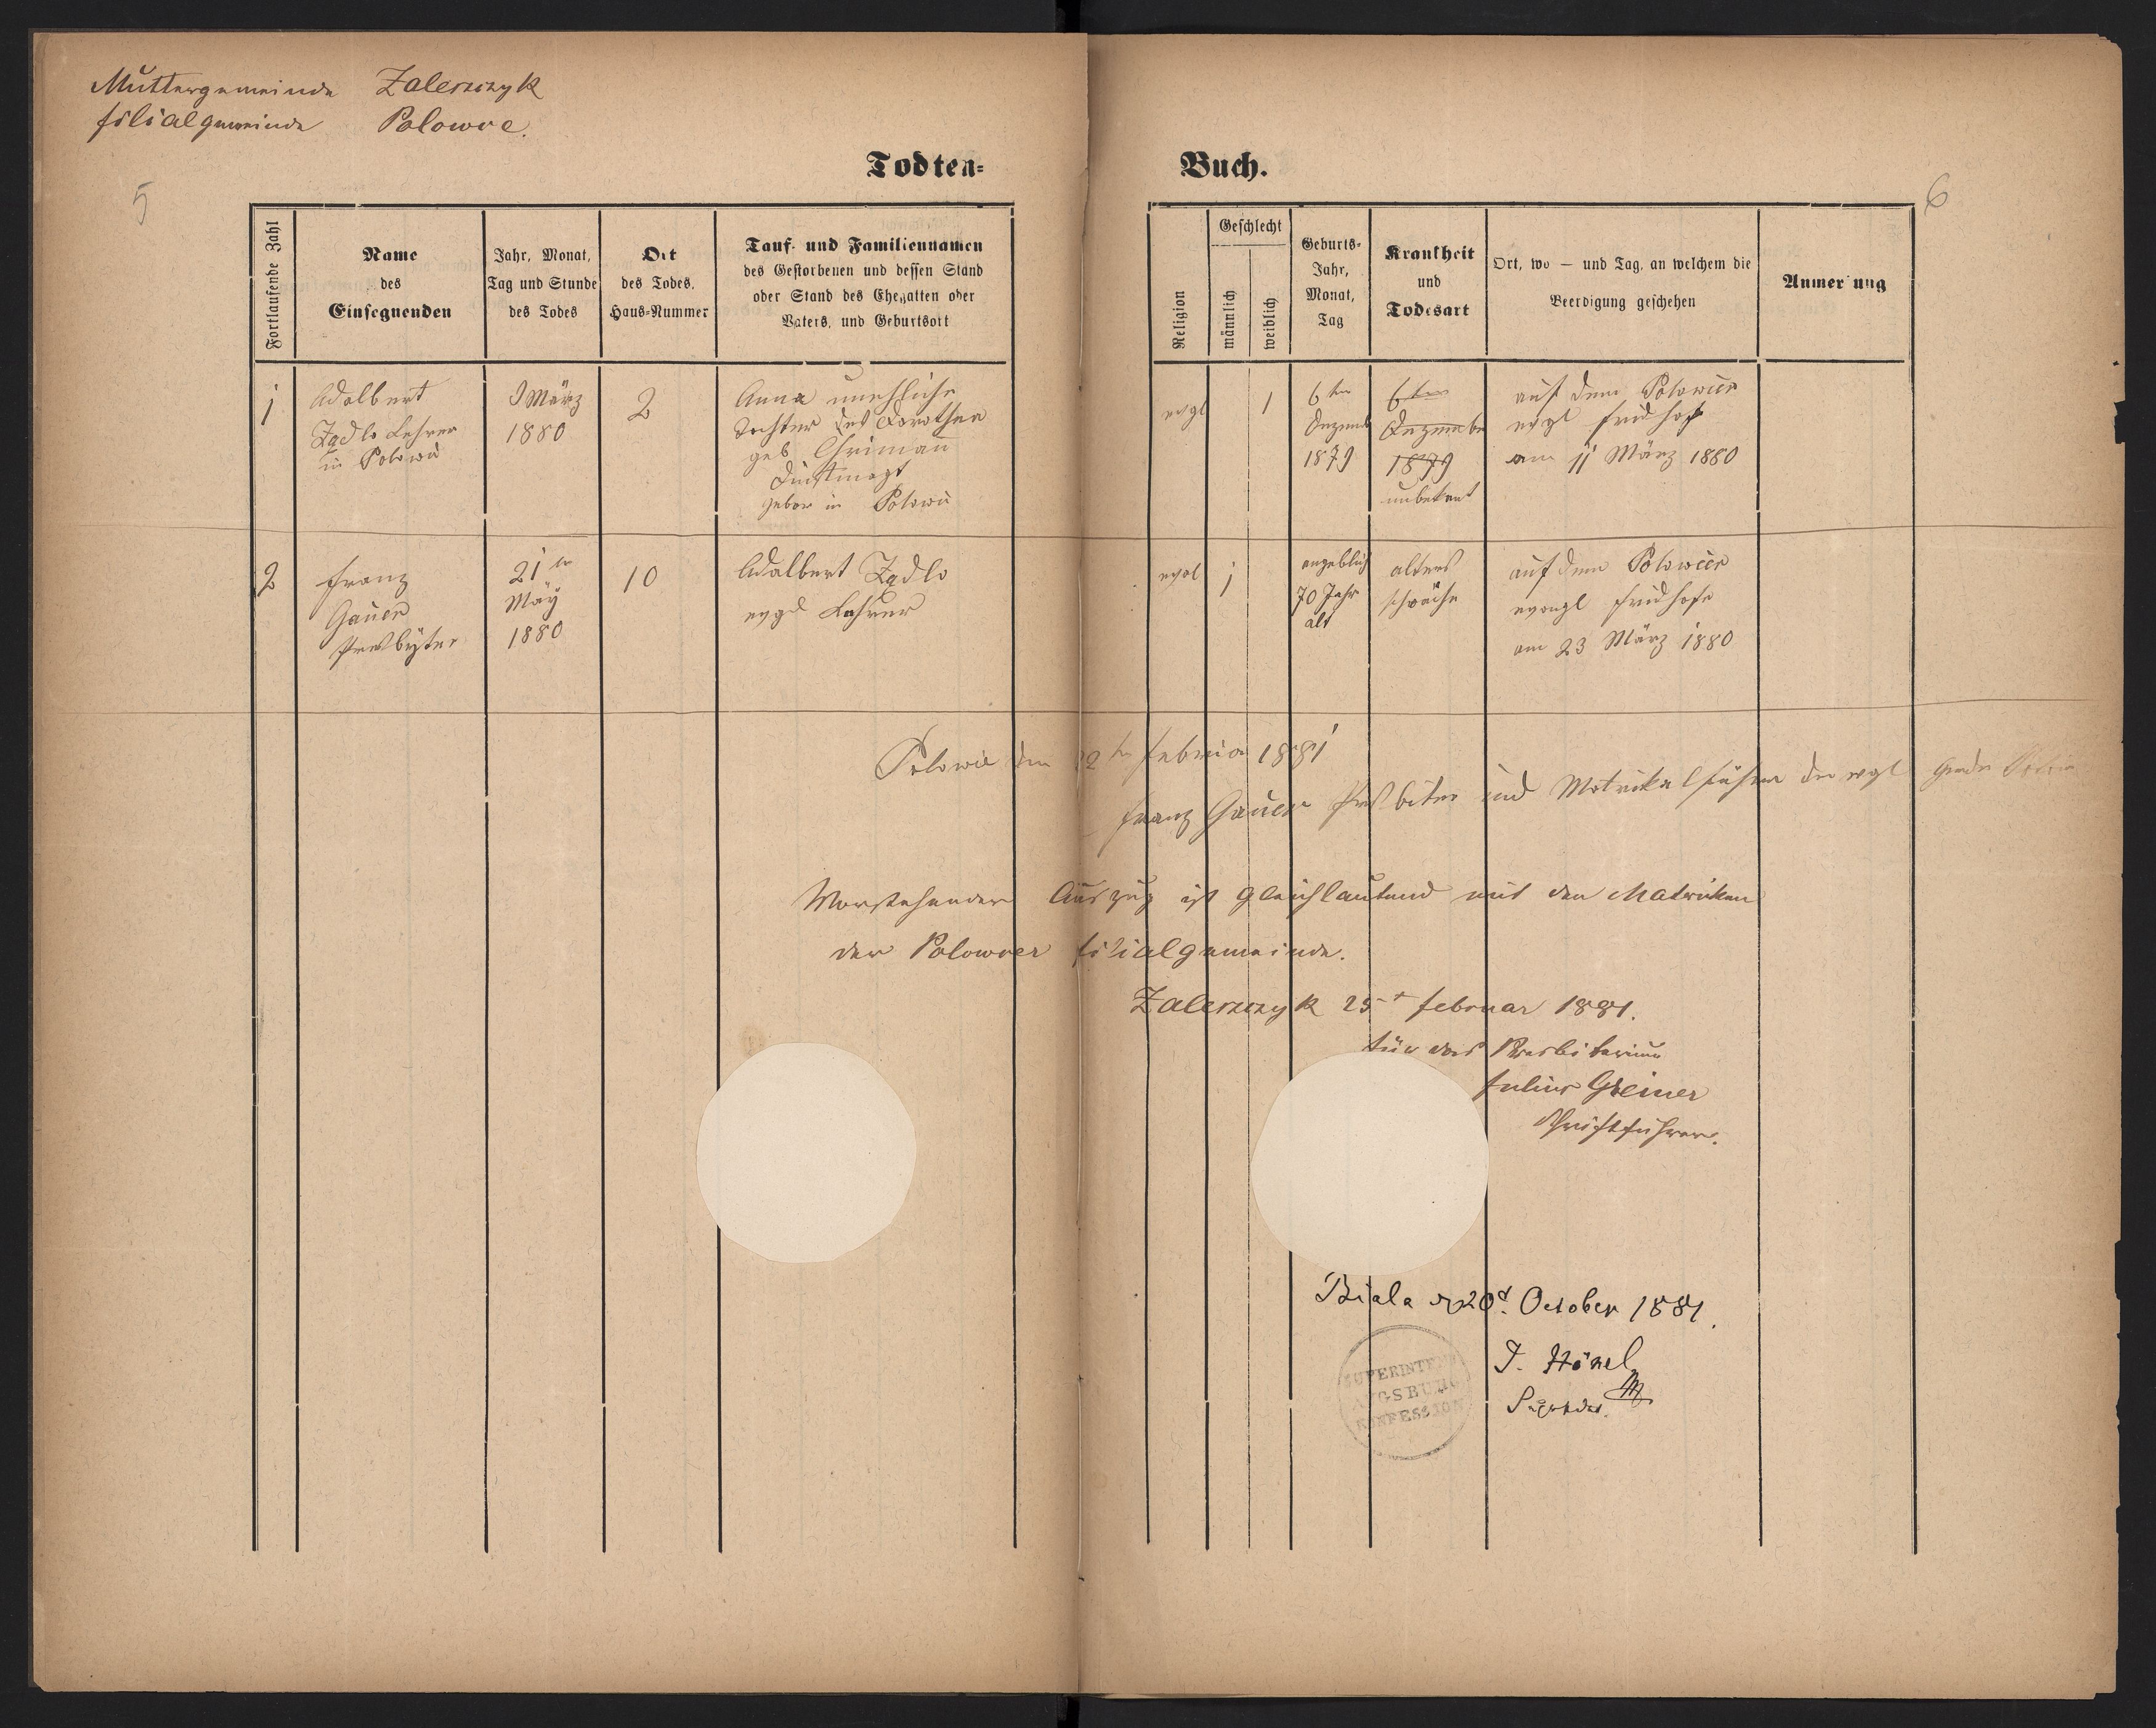 Muttergemeinde Zaleszczyk
Filialgemeinde Polowce.
5
6
Todten=
Buch.
Fortlaufende Zahl
Name
des
Einsegnenden
Jahr, Monat,
Tag und Stunde
des Todes
Ort
des Todes,
Haus=Nummer
Tauf- und Familiennamen
des Gestorbenen und dessen Stand
oder Stand des Ehegatten oder
Vaters, und Geburtsort
Religion
Geschlecht
männlich
weiblich
Geburts=
Jahr,
Monat,
Tag
Krankheit
und
Todesart
Ort, wo — und Tag, an welchem die
Beerdigung geschehen
Anmerkung
1
Adalbert
Żądlo Lehrer
in Polowce
9 März
1880
2
Anna unehliche
Tochter der Dorothea
geb
Dinstmagt
gebor in Polowce
evgl
1
6ten
Dezemb
1879
6ten
Dezembe
1879
unbekant
auf dem Polowcer
evgl Fridhof
am 11 März 1880
2
Franz
Gauer
Presbyter
21ten
May
1880
10
Adalbert Żądlo
evgl Lehrer
1
angeblich
70 Jahr
alt
alters
schwäche
auf dem Polowcer
evangl Fridhofe
am 23 März 1880
Polowce den Februar 1881
Franz Gauer Presbiter und Matrikelführer der evgl
Vorstehender Auszug ist gleichlautend mit den Matriken
der Polowcer Filialgemeinde.
Zaleszczyk 25t Februar 1881.
Für das Presbiterium
Julius Greiner
Schriftführer.
Biala d 20t. October 1881.
J. Hönel
Superdt.
SUPERINTEN
AUGSBURG
KONFESSION